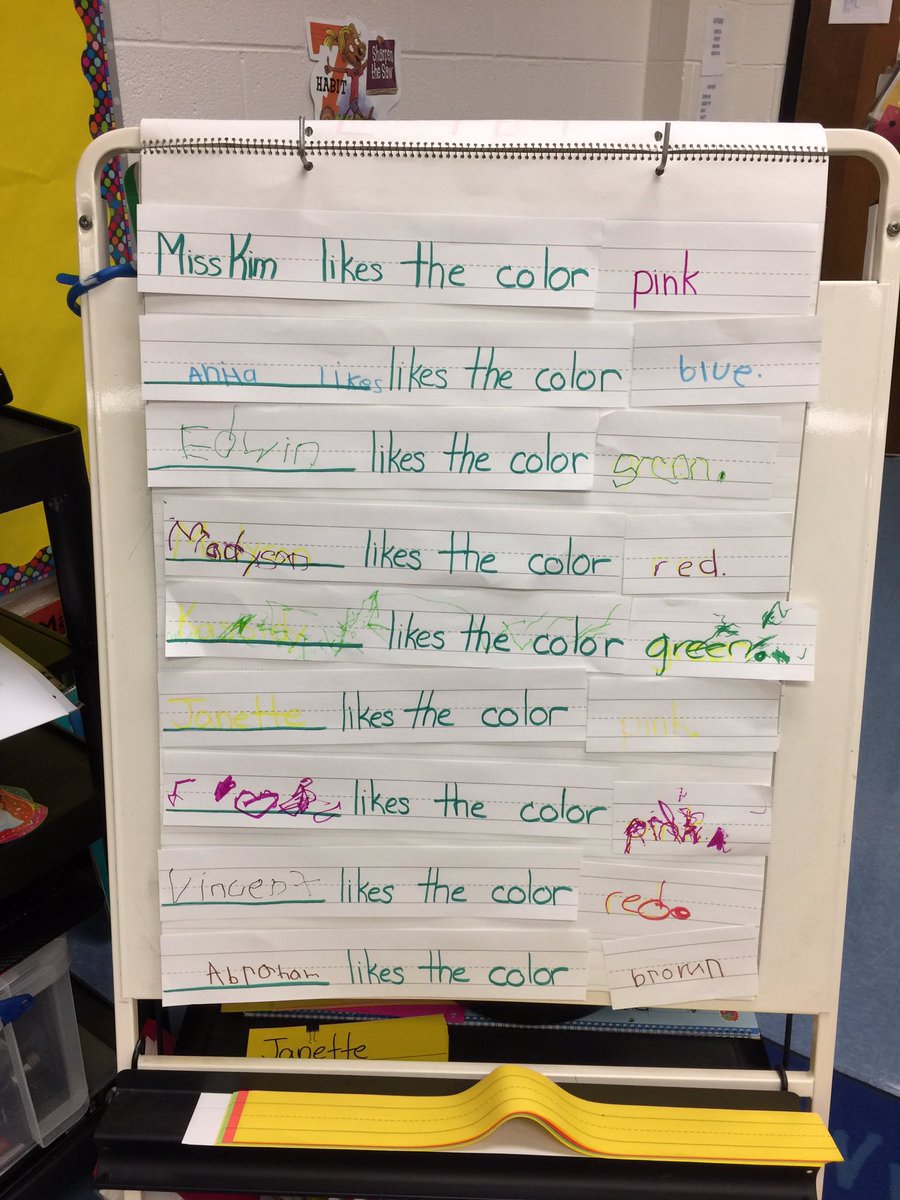 7
HABIT
Sharpen the Saw
Miss Kim likes the color pink
Anha likes likes the color blue.
Edwin likes the color green.
Madyson likes the color red.
likes the color green.
Janette likes the color pink.
likes the color pink.
Vincent likes the color red.
Abraham likes the color brown
Janette